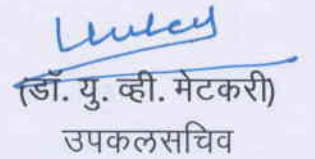 (डॉ. यु. व्ही. मेटकरी)
उपकलसचिव